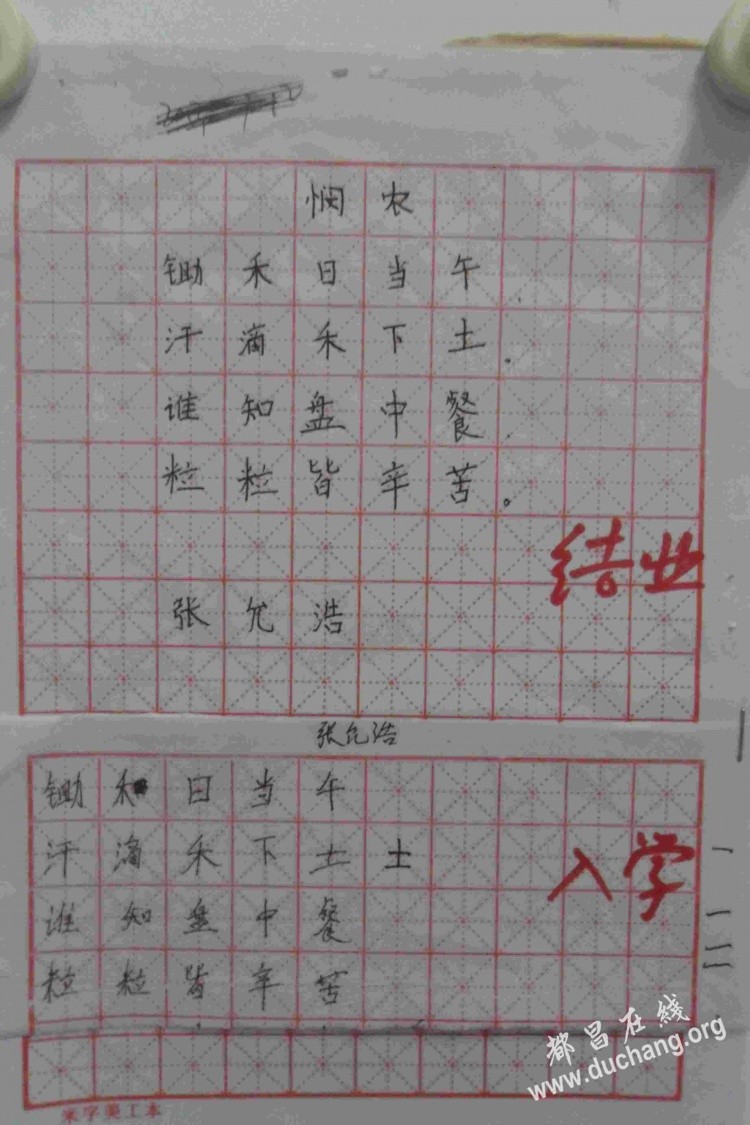 悯农
锄禾日当午
汗滴禾下土。
谁知盘中餐
粒粒皆辛苦。
结业
张允浩
张允浩
锄禾日当午
汗滴禾下土 土
入学
谁知盘中餐
粒粒皆辛苦
都昌在线
www.duchang.org
米字美工本